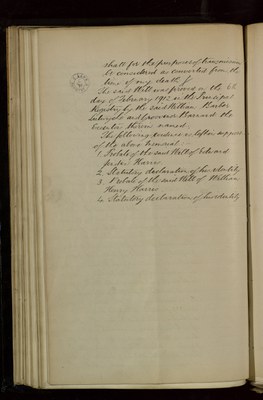 shall for the purposes of transmission
be considered as converted from the
time of my death."
The said Will was proved on the 6th
day of February 1912 in the Principal
Registry by the said William Barber
and Harris the
Executors therein named.
The following evidence is left in support
of the above memorial
1. Probate of the said Will of Edward
Harris
2. Statutory declaration of his identity
3. Probate of the said Will of William
Henry Harris
4. Statutory declaration of his identity